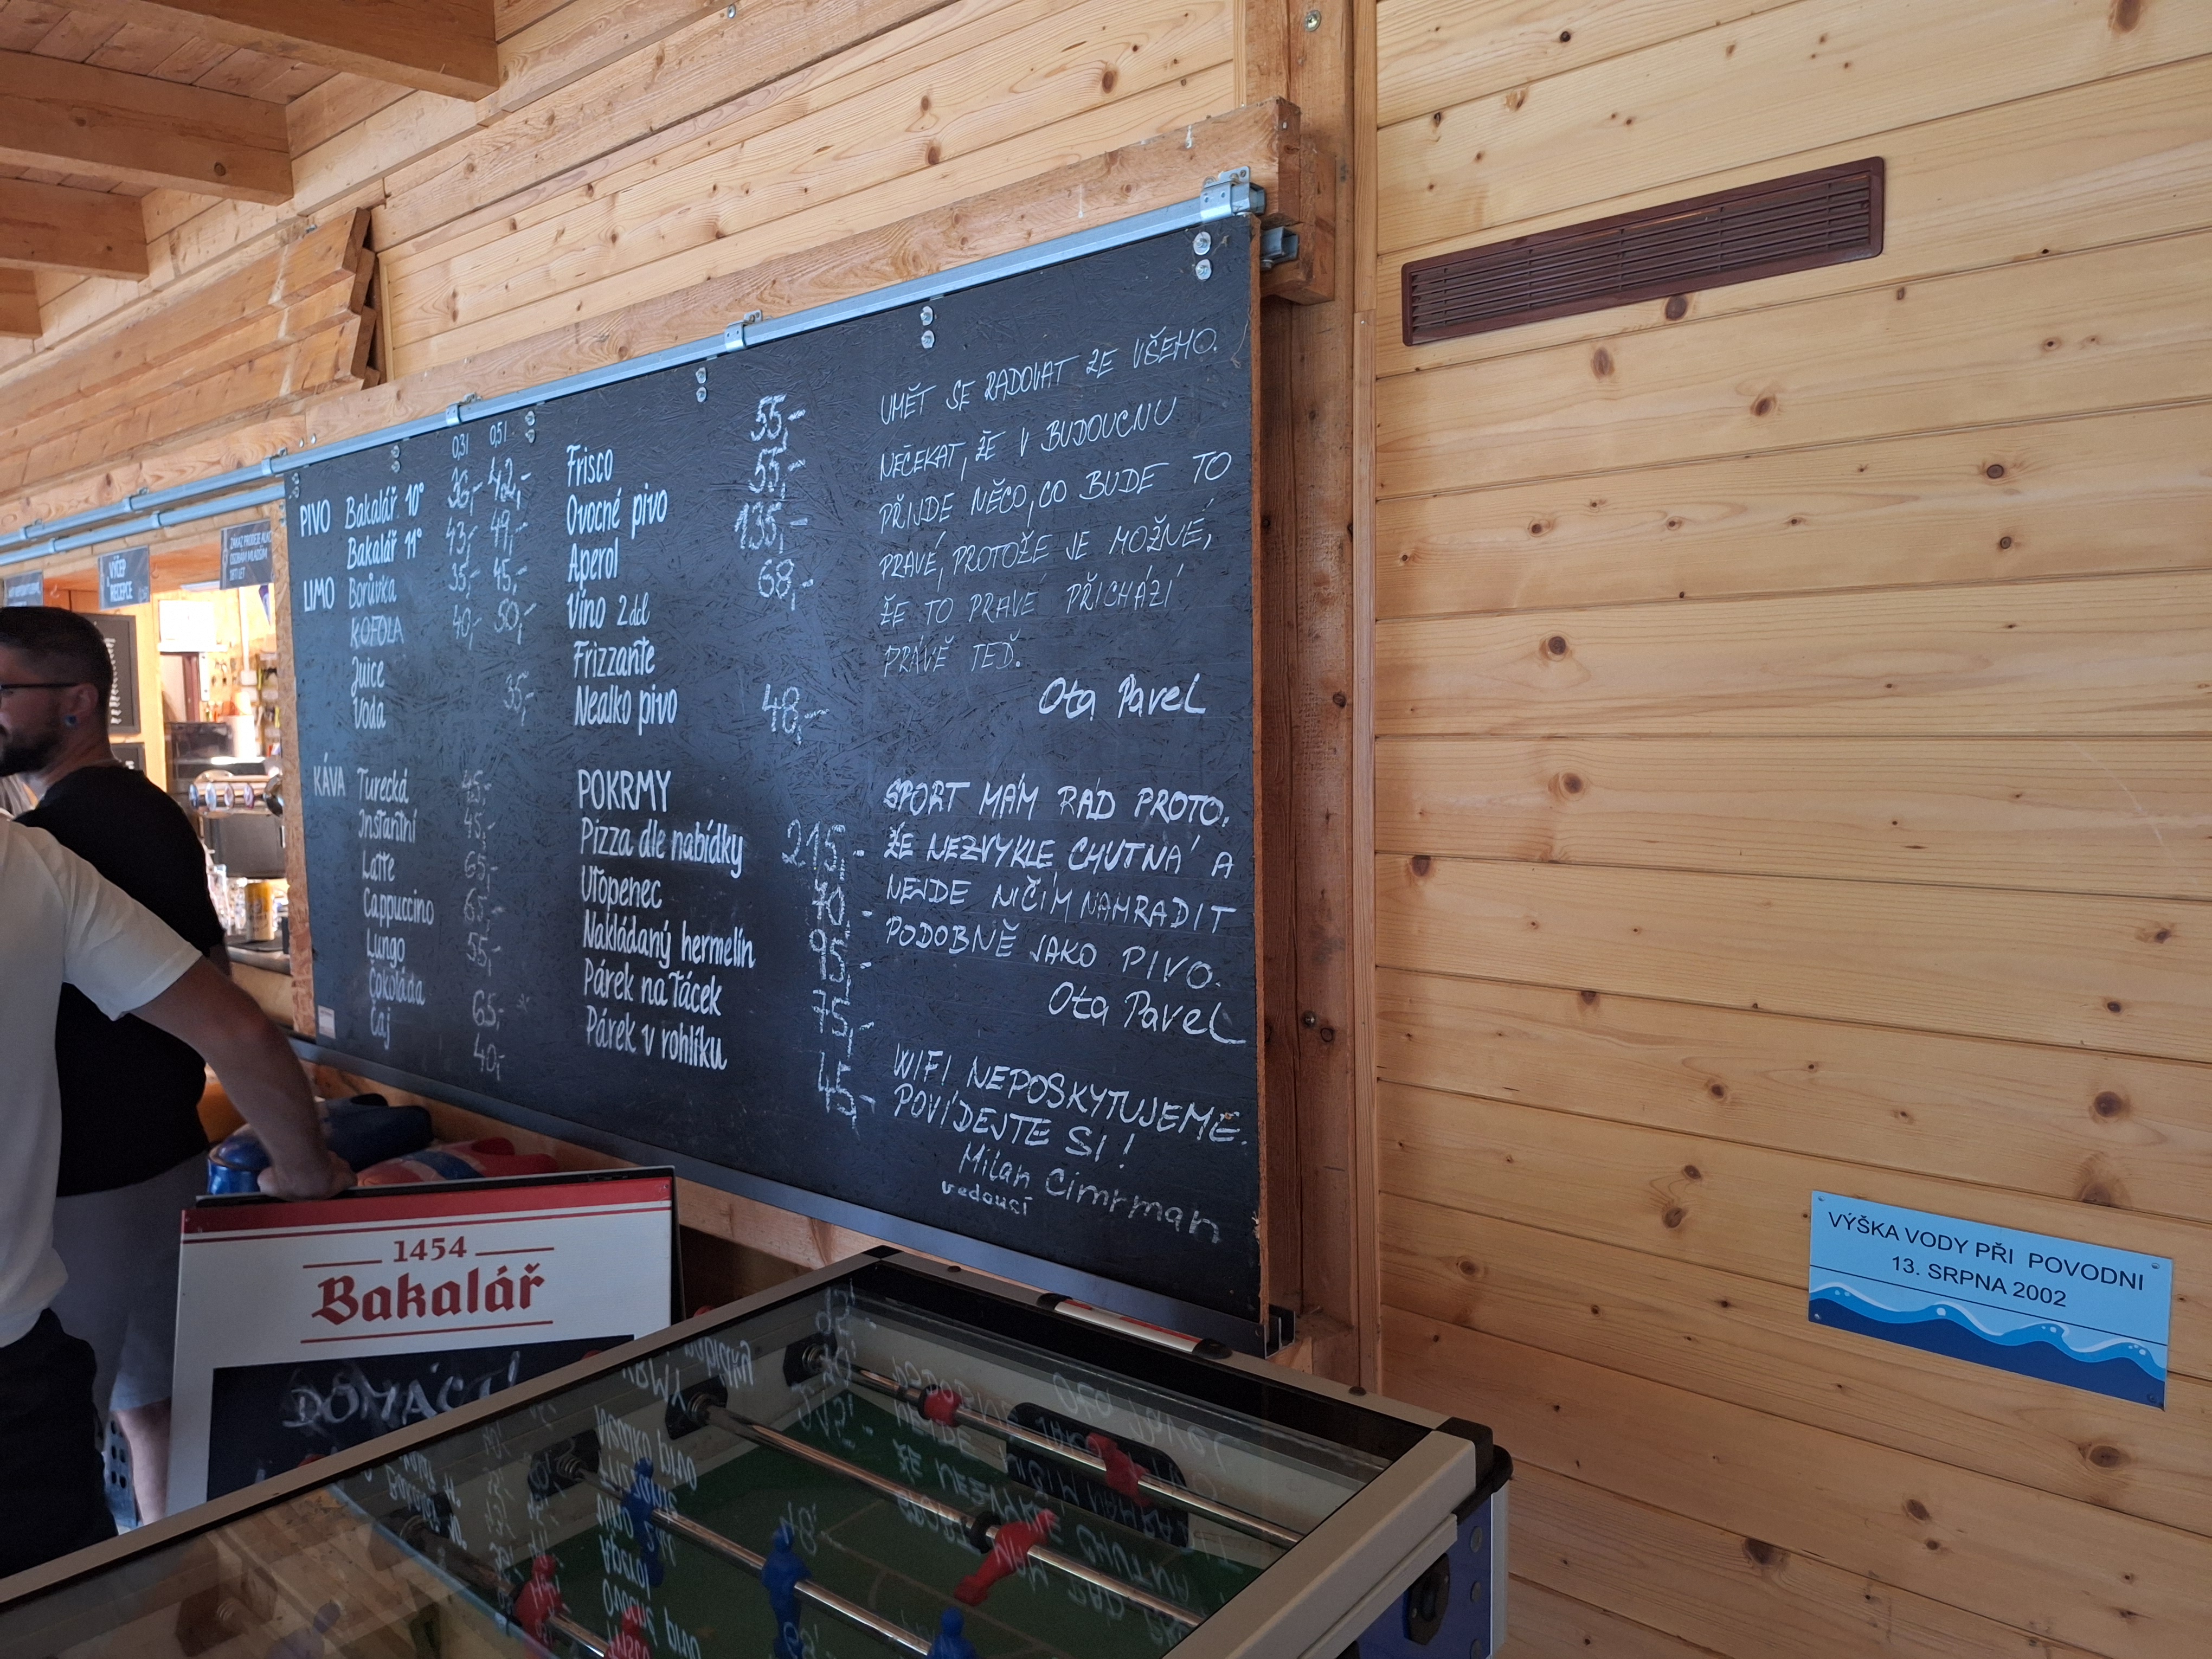 0,3l 0,5l
PIVO Bakalář 10° 36,- 42,-
Bakalář 11° 43,- 49,-
LIMO Borůvka 35,- 45,-
KOFOLA 40,- 50,-
Juice
Voda 35,-
KÁVA Turecká 45,-
Instantní 45,-
Latte 65,-
Cappuccino 65,-
Lungo 55,-
Čokoláda 65,-
Čaj 40,-
Frisco 55,-
Ovocné pivo 55,-
Aperol 135,-
Víno 2dcl 68,-
Frizzante
Nealko pivo 48,-
POKRMY
Pizza dle nabídky 215,-
Utopenec 70,-
Nakládaný hermelín 95,-
Párek na tácek 75,-
Párek v rohlíku 45,-
UMĚT SE RADOVAT ZE VŠEHO.
NEČEKAT, ŽE V BUDOUCNU
PŘIJDE NĚCO, CO BUDE TO
PRAVÉ, PROTOŽE JE MOŽNÉ,
ŽE TO PRAVÉ PŘICHÁZÍ
PRÁVĚ TEĎ.
Ota Pavel
SPORT MÁM RÁD PROTO,
ŽE NEZVYKLE CHUTNÁ A
NEJDE NIČÍM NAHRADIT
PODOBNĚ JAKO PIVO.
Ota Pavel
WIFI NEPOSKYTUJEME.
POVÍDEJTE SI!
Milan Cimrman
vedoucí
VÝČEP
RECEPCE
1454
Bakalář
DOMÁCÍ
VÝŠKA VODY PŘI POVODNI
13. SRPNA 2002